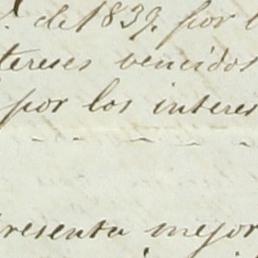 de 1839. por
tereses vencidos
por los interes
resenta mejor